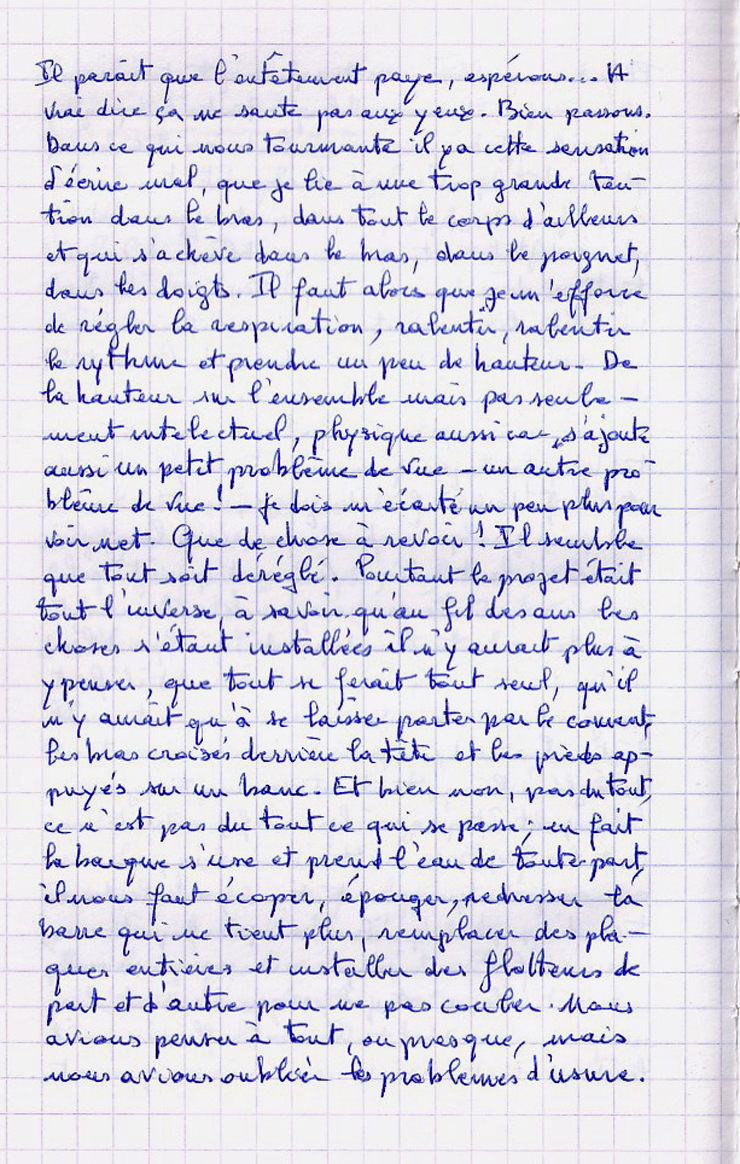 Il paraît que l'entêtement paye, espérons... A
vrai dire ça ne saute pas aux yeux. Bien passons.
Dans ce qui nous tourmante il y a cette sensation
d'écrire mal, que je lie à une trop grande ten-
tion dans le bras, dans tout le corps d'ailleurs
et qui s'achève dans le bras, dans le poignet,
dans les doigts. Il faut alors que je m'efforce
de régler la respiration, ralentir, ralentir
le rythme et prendre un peu de hauteur. De
la hauteur sur l'ensemble mais pas seule-
ment intelectuel, physique aussi car s'ajoute
aussi un petit problème de vue - un autre pro-
blème de vue ! - je dois m'écarté un peu plus pour
voir net. Que de chose à revoir ! Il semble
que tout soit déréglé. Pourtant le projet était
tout l'inverse, à savoir qu'au fil des ans les
choses s'étant installées il n'y aurait plus à
y penser, que tout se ferait tout seul, qu'il
n'y aurait qu'à se laisser porter par le courant,
les bras croisés derrière la tête et les pieds ap-
puyés sur un banc. Et bien non, pas du tout,
ce n'est pas du tout ce qui se passe ; en fait
la barque s'use et prend l'eau de toute part,
il nous faut écoper, éponger, redresser la
barre qui ne tient plus, remplacer des pla-
ques entières et installer des flotteurs de
part et d'autre pour ne pas couler. Nous
avions penser à tout, ou presque, mais
nous avions oublier les problèmes d'usure.